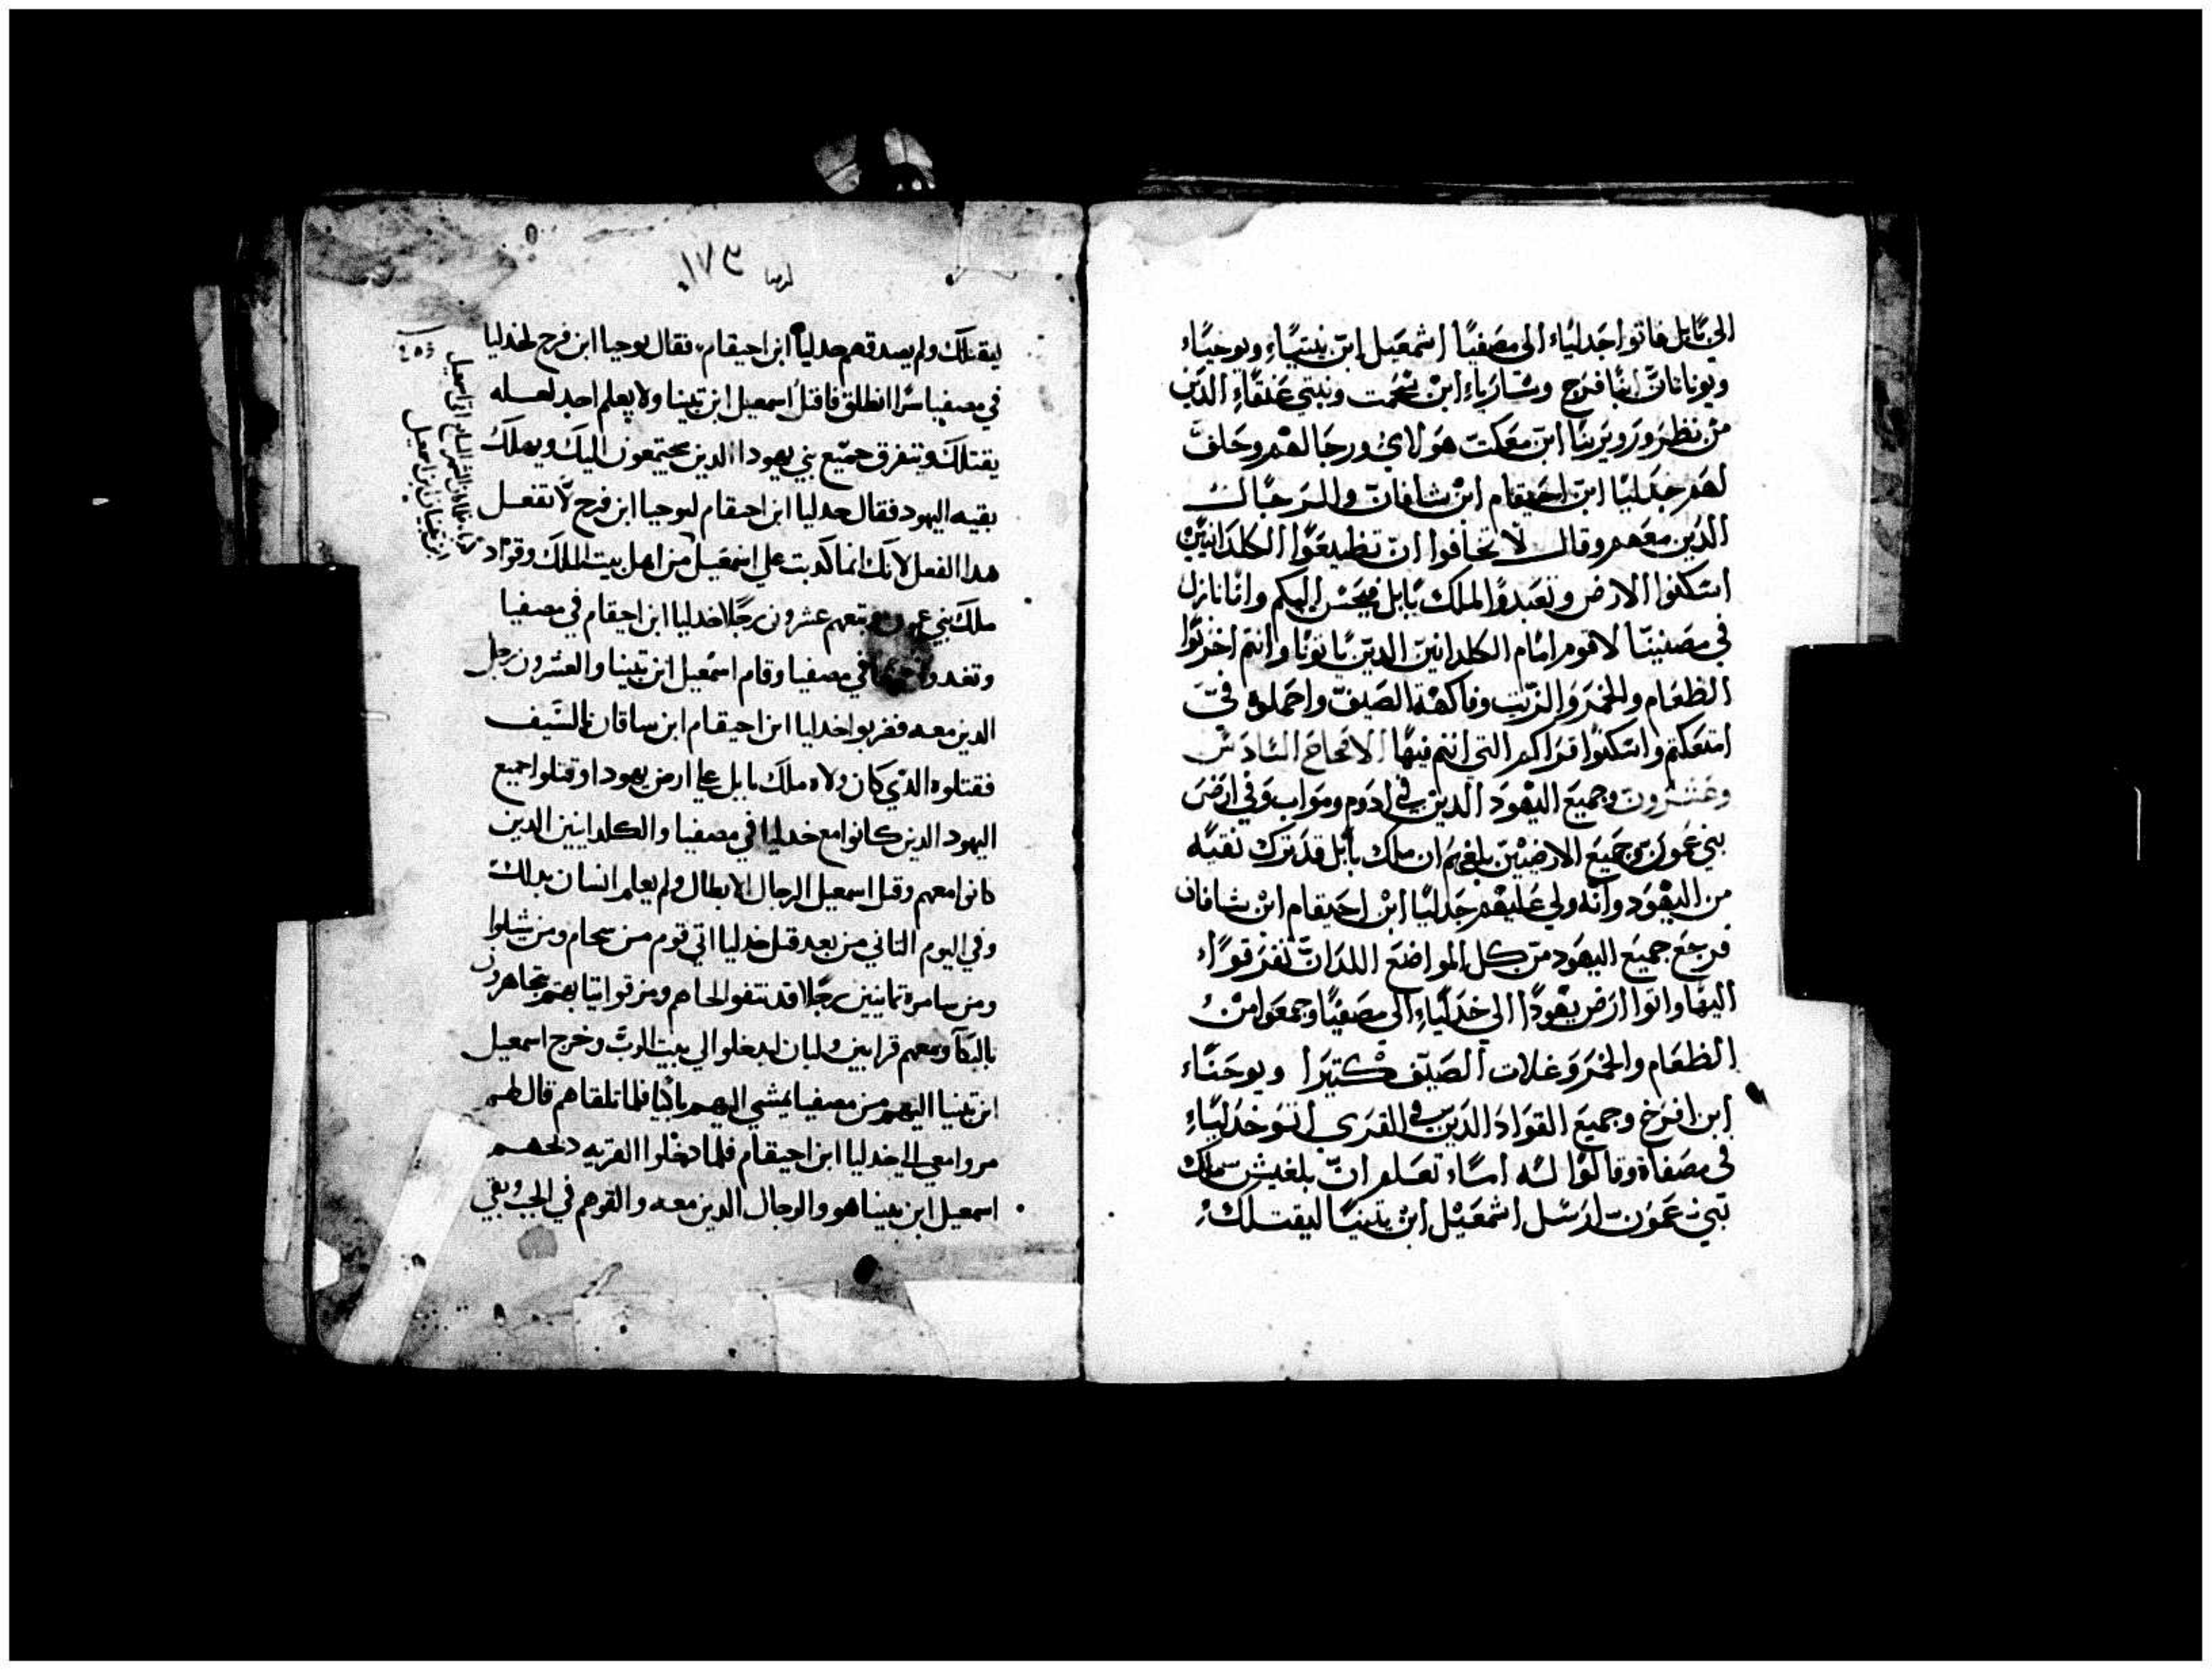 الي بابل فاتوا جدلياء الي مصفيا اشمعيل ابن نيتياء ويوحياء
ويوناتان ابنا فرح وسارياء ابن تنحمت وبني عنقاء الدين
من نطر وروبرنيا ابن معكت هولاي ورجالهم وحلف
لهم جدليا ابن احيقام ابن شافان وللرجال
الدين معهم وقال لا تخافوا ان تطيعوا الكلدانيين
اسكنوا الارض وتعبدوا لملك بابل فيحسن اليكم وانا نازل
في مصفيا لاقوم امام الكلدانين الدين ياتونا وانتم اخزنوا
الطعام والخمر والزيت وفاكهة الصيف واحملوه في
امتعتكم واسكنوا قراكم التي انتم فيها الاصحاح السادس
وعشرون وجميع اليهود الدين في ادوم ومواب وفي ارض
بني عمون وجميع الارضين بلغهم ان ملك بابل قد ترك بقيه
من اليهود وانه ولي عليهم جدليا ابن احيقام ابن شافان
فرجع جميع اليهود من كل المواضع اللدان تفرقوا
اليها واتوا ارض يهودا الي خدلياء الي مصفيا وجمعوا من
الطعام والخمر وغلات الصيف كتيرا ويوحناء
ابن افرح وجميع القواد الدين في القري اتو خدلياء
في مصفاة وقالوا له اساء تعلم ان بلغيس ملك
بني عمون ارسل اشمعيل ابن يتنيا ليقتلك
ارميا ١٧٣
ليقتلك ولم يصدقهم جدليا ابن احيقام فقال يوحيا ابن فرح لخدليا
في مصفيا سرا انطلق فاقتل اسمعيل ابن تينيا ولا يعلم احد لعله
يقتلك ويتفرق جميع بني يهودا الدين يجتمعون اليك ويهلك
بقيه اليهود فقال جدليا ابن احيقام ليوحيا ابن فرح لا تفعل
هدا الفعل لانك انما كدبت علي اسمعيل من اهل بيت الملك وقواد
ملك بني عمون ومعهم عشرون رجلا خدليا ابن احيقام في مصفيا
وتغدوا في مصفيا وقام اسمعيل ابن تينيا والعشرون رجل
الدين معه فضربوا خدليا ابن احيقام ابن ساقان بالسيف
فقتلوه الدي كان ولاه ملك بابل علي ارض يهودا وقتلوا جميع
اليهود الدين كانوا مع خدليا في مصفيا والكلدانيين الدين
كانوا معهم وقتل اسمعيل الرجال الابطال ولم يعلم انسان بدلك
وفي اليوم التاني من بعد قتل خدليا اتي قوم من سحام ومن شلوا
ومن سامرة تمانيين رجلا قد نتفوا لحاهم ومزقوا تيابهم يتجاهرون
بالبكا ومعهم قرابين ولبان ليدخلوا الي بيت الرب وخرج اسمعيل
ابن تينيا اليهم من مصفيا يمشي اليهم باكيا فلما تلقاهم قال لهم
مروا معي الي خدليا ابن احيقام فلما دخلوا القريه دبحهم
اسمعيل ابن تينيا هو والرجال الدين معه والقوهم في الجب وبقي